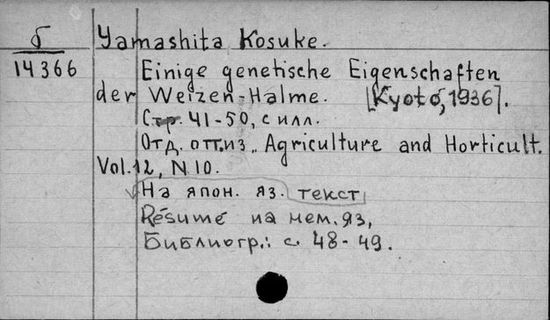 б
14366
Yamashita Kosuke.
Einige genetische Eigenschaften
der Weizen-Halme. [Kyoto, 1936].
Стр. 41-50, с илл.
Отд. отт. из „Agriculture and Horticult.
Vol. 12, N 10.
На япон. яз. текст
Résumé на нем. яз,
Библиогр.: с. 48-49.